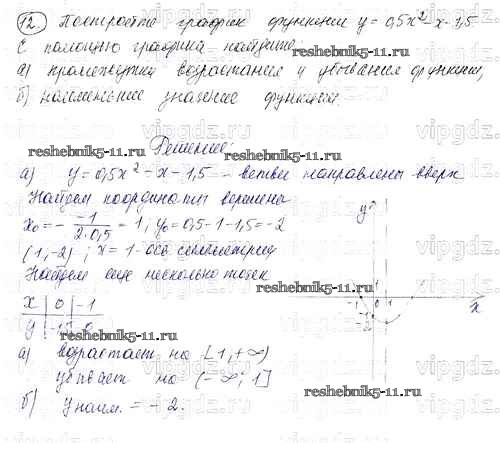 12. Построить график функции y = 0,5x² - x - 1,5
С помощью графика найдите:
а) промежутки возрастания и убывания функции,
б) наименьшее значение функции.
reshebnik5-11.ru
Решение:
reshebnik5-11.ru
а) y = 0,5x² - x - 1,5 - ветви направлены вверх
Найдем координаты вершины
x₀ = - -1/2·0,5 = 1, y₀ = 0,5-1-1,5 = -2
(1,-2); x = 1 - ось симметрии
Найдем еще несколько точек
reshebnik5-11.ru
x | 0 | -1
y | -1,5 | 0
reshebnik5-11.ru
а) возрастает на [1, +∞)
убывает на (-∞; 1]
б) y наим. = -2.
reshebnik5-11.ru
y
-1 0 1
-1
-2
x
vipgdz.com